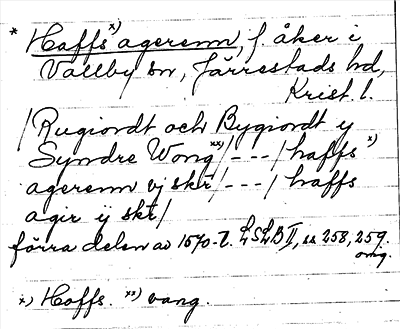 * Haffs x) agerenn, f. åker i
Vallby sn, Järrestads hd,
Krist. l.
/Rugiordt och Bygiordt y
Syndre Wong xx)/---/haffs x)
agerenn vj skr/---/haffs
agir ij skr/
förra delen av 1570-t. LSLB II, ss 258, 259.
orig.
x) Hoffs. xx) vang.